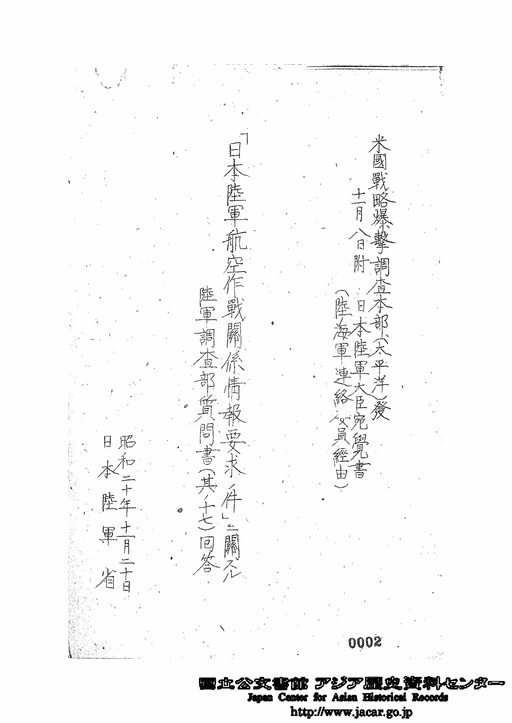 米國戰略爆擊調査本部(太平洋)發
十一月八日附 日本陸軍大臣宛覺書
(陸海軍連絡委員經由)
「日本陸軍航空作戰關係情報要求ノ件」ニ關スル
陸軍調査部質問書(其ノ十七)回答
昭和二十年十一月二十日
日本陸軍省
0002
国立公文書館 アジア歴史資料センター
Japan Center for Asian Historical Records
http://www.jacar.go.jp